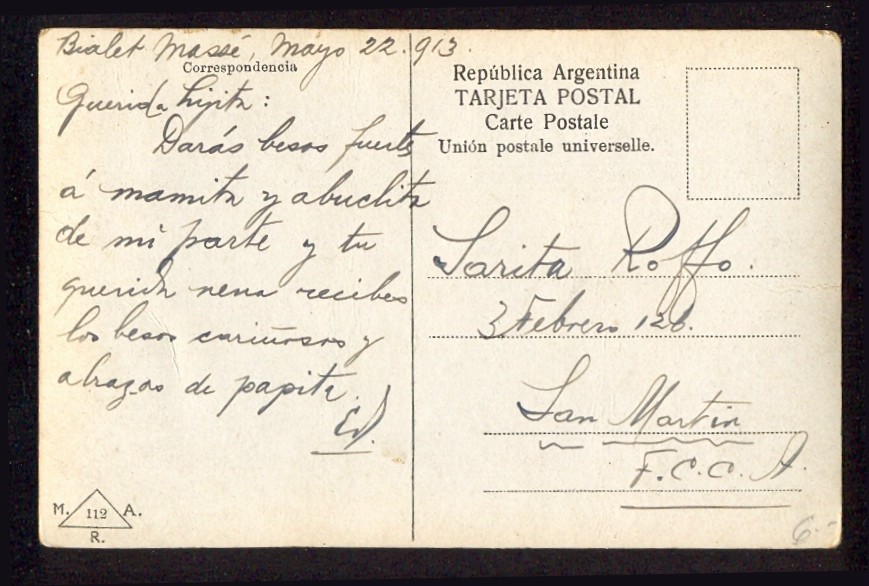 Bialet Massé, Mayo 22. 913.
Correspondencia
Querida hijita:
Darás besos fuerte
á mamita y abuelita
de mi parte y tu
querida nena recibes
los besos cariñosos y
abrazos de papita.
Ed.
M. 112 A.
R.
República Argentina
TARJETA POSTAL
Carte Postale
Unión postale universelle.
Sarita Roffo.
3 Febrero 126.
San Martin
F.C.C.A.
6.-